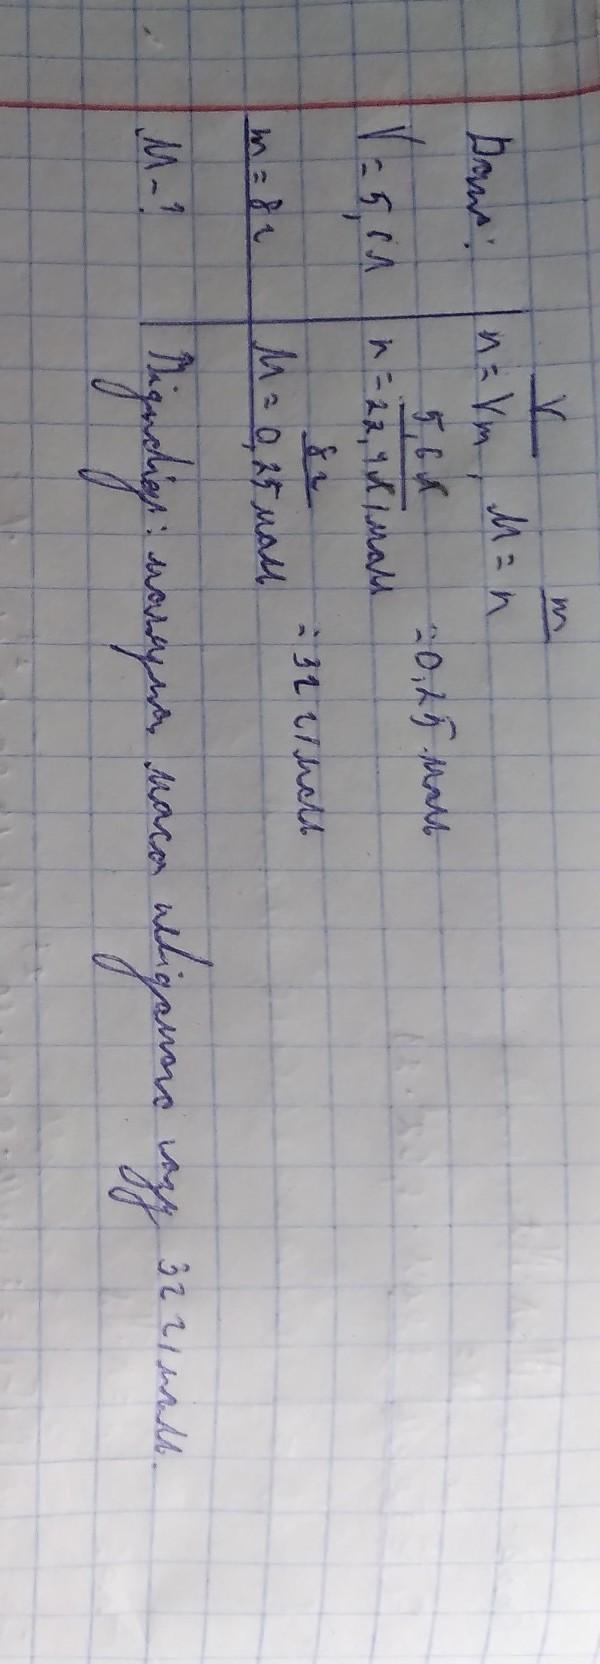 Дано:
V = 5,6 л
m = 8 г
M - ?
n = V/Vm, M = m/n
n = 5,6 л/22,4 л/моль = 0,25 моль
M = 8 г/0,25 моль = 32 г/моль
Відповідь: молярна маса невідомого газу 32 г/моль.